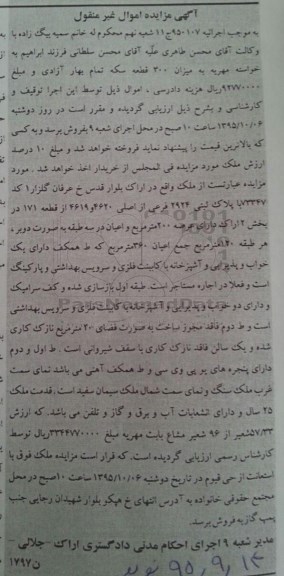 آگهی مزایده اموال غیر منقول
به موجب اجرائیه ۹۵۰۱۰۷ج۱۱ شعبه نهم محکوم له خانم سمیه بیگ زاده با
وکالت آقای محسن طاهری علیه آقای محسن سلطانی فرزند ابراهیم به
خواسته مهریه به میزان ۳۰۰ قطعه سکه تمام بهار آزادی و مبلغ
ریال هزینه دادرسی ، اموال ذیل توسط این اجرا توقیف و
کارشناسی و بشرح ذیل ارزیابی گردیده و مقرر است در روز دوشنبه
۱۳۹۵/۱۰/۰۶ ساعت ۱۰ صبح در محل اجرای شعبه ۹ بفروش برسد و به کسی
که بالاترین قیمت را پیشنهاد نماید فروخته خواهد شد و مبلغ ۱۰ درصد
ارزش ملک مورد مزایده فی المجلس از خریدار اخذ خواهد شد . مورد
مزایده عبارتست از ملک واقع در اراک بلوار قدس خ عرفان گلزار۱ کد
۷۳۳۴۷با پلاک ثبتی ۲۹۲۴ فرعی از اصلی ۴۶۲۰و۴۶۱۹ از قطعه ۱۷۱ در
بخش ۲ اراک دارای عرصه ۲۰۰مترمربع و اعیان در سه طبقه به صورت دوبر ،
هر طبقه ۱۲۰مترمربع جمع اعیان ۳۶۰مترمربع که ط همکف دارای یک
خواب و پذیرایی و آشپزخانه با کابینت فلزی و سرویس بهداشتی و پارکینگ
است و فعلا در اجاره مستاجر است. طبقه اول بازسازی شده و کف سرامیک
و دارای دو خواب و پذیرایی و آشپزخانه کابینت فلزی و سرویس بهداشتی
است و ط دوم فاقد مجوز ساخت به صورت فضای ۲۰ مترمربع نازک کاری
شده و یک سالن فاقد نازک کاری با سقف شیروانی است . ط اول و دوم
دارای پنجره های یو پی وی سی و ط همکف آهنی می باشد نمای سمت
غرب ملک سنگ و نمای سمت شمال ملک سیمان سفید است .قدمت ملک
۲۵ سال و دارای انشعابات آب و برق و گاز و تلفن می باشد. که ارزش
۵۷/۳۳شعیر از ۹۶ شعیر مشاع بابت مهریه مبلغ ۳۳۴۴۷۷۰۰۰۰ریال توسط
کارشناس رسمی ارزیابی گردیده است. که قرار است مزایده ملک فوق با
استعانت از حی قیوم در تاریخ دوشنبه ۱۳۹۵/۱۰/۰۶ ساعت ۱۰صبح در محل
مجتمع حقوقی خانواده به آدرس انتهای خ هپکو بلوار شهیدان رجایی جنب
پمپ گاز به فروش برسد.
مدیر شعبه ۹ اجرای احکام مدنی دادگستری اراک -جلالی -
۱۷۹۷ن
۹۵,۹,۱۳